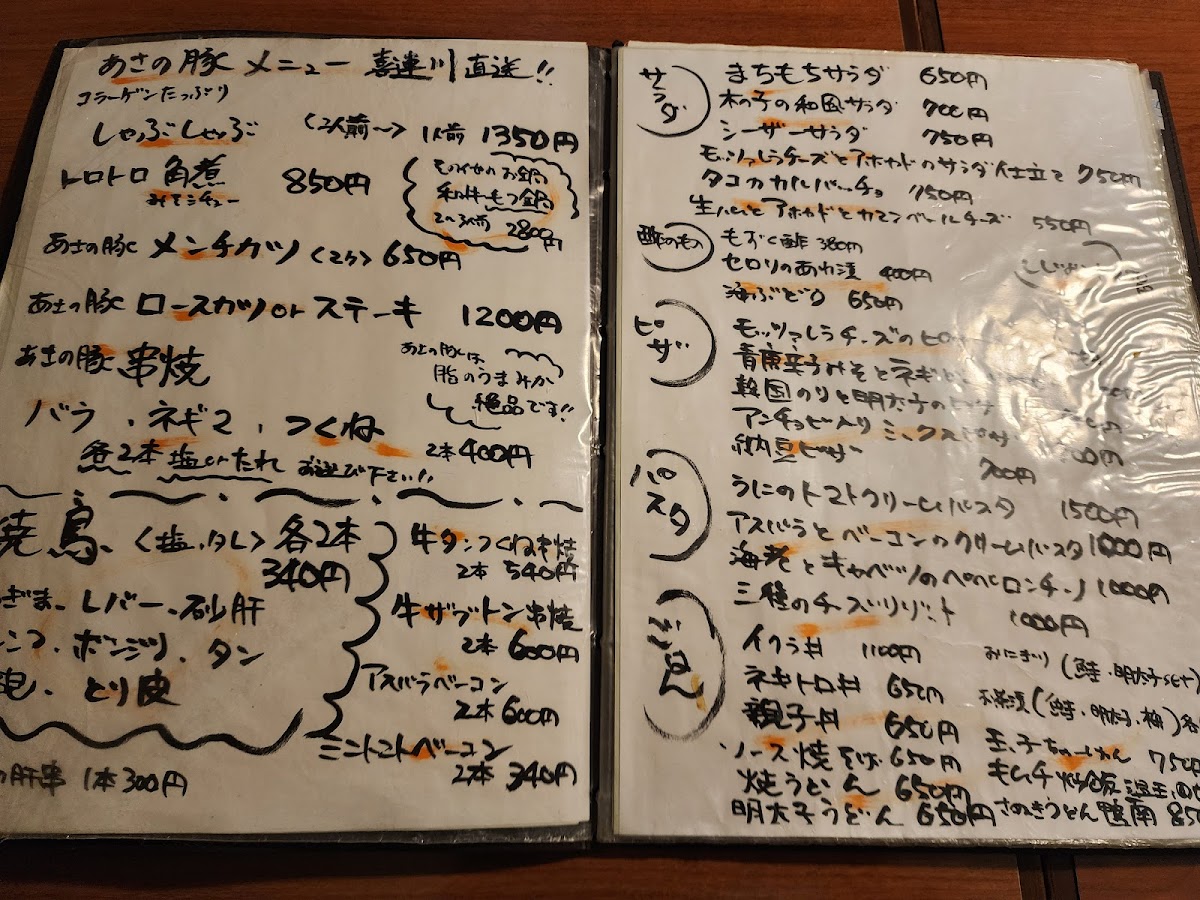 あさの豚 メニュー 喜連川直送!!
コラーゲンたっぷり
しゃぶしゃぶ <2人前〜> 1人前 1350円
トロトロ 角煮 850円
みそシチュー
お鍋
和牛もつ鍋
2〜3人前 2800円
あさの豚 メンチカツ <2ケ> 650円
あさの豚 ロースカツ or ステーキ 1200円
あさの豚 串焼
あさの豚は
脂のうまみが
絶品です!!
バラ、ネギマ、つくね 2本400円
各2本 塩orたれ お選び下さい!!
焼鳥 <塩、タレ> 各2本
340円
ぎま、レバー、砂肝
ボンジリ、タン
とり皮
肝串 1本300円
牛タンつくね串焼
2本 540円
牛ザブトン串焼
2本 600円
アスパラベーコン
2本 600円
ミニトマトベーコン
2本 340円
サラダ
もちもちサラダ 650円
木の子の和風サラダ 700円
シーザーサラダ 750円
モッツァレラチーズとアボカドのサラダ仕立て 750円
タコのカルパッチョ 750円
生ハムとアボカドとカマンベールチーズ 550円
酢のもの
もずく酢 380円
セロリのあわ漬 400円
海ぶどう 650円
ピザ
モッツァレラチーズのピ
青唐辛子みそとネギ
韓国のりと明太子の
アンチョビ入りミックスピザ
納豆ピザ 700円
パスタ
うにのトマトクリームパスタ 1500円
アスパラとベーコンのクリームパスタ 1000円
海老とキャベツのペペロンチーノ 1000円
三種のチーズリゾット 1000円
ご飯
イクラ丼 1100円
ネギトロ丼 650円
親子丼 650円
ソース焼そば 650円
焼うどん 650円
明太子うどん 650円
おにぎり (鮭・明太子set)
お茶漬 (鮭・明太子・梅) 各
玉子ぞうすい 750円
キムチ炒飯 温玉
さぬきうどん鴨南 850